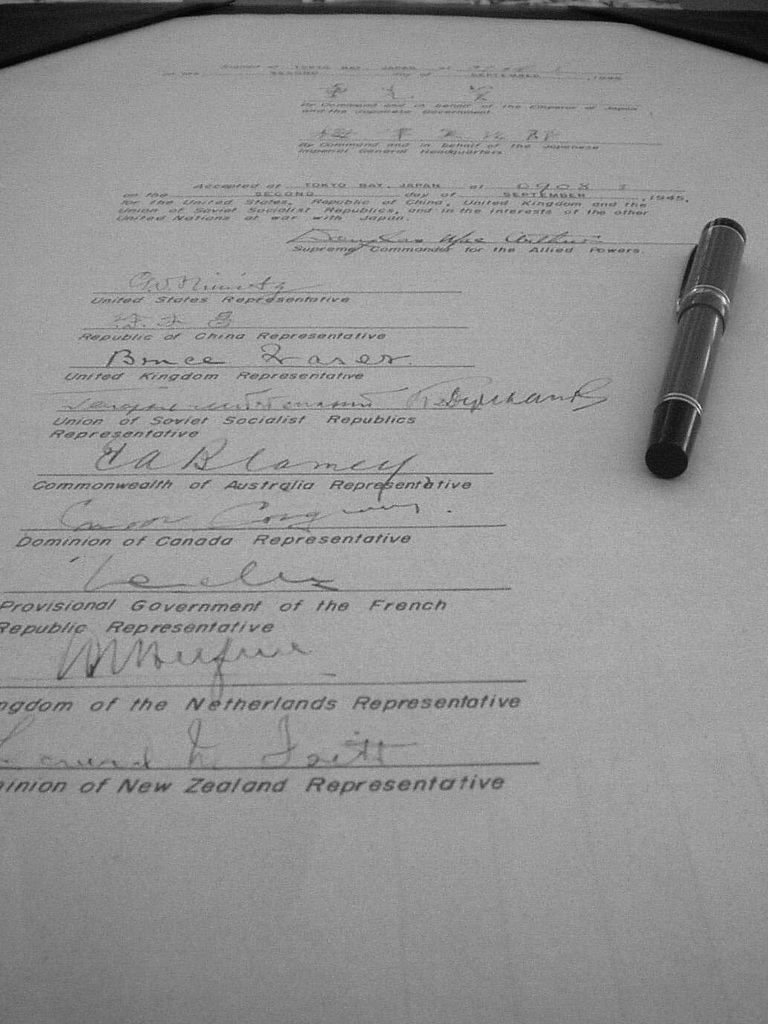 Signed at TOKYO BAY, JAPAN at
on the SECOND day of SEPTEMBER , 1945
By Command and in behalf of the Emperor of Japan
and the Japanese Government
By Command and in behalf of the Japanese
Imperial General Headquarters
Accepted at TOKYO BAY, JAPAN at 0908 I
on the SECOND day of SEPTEMBER , 1945,
for the United States, Republic of China, United Kingdom and the
Union of Soviet Socialist Republics, and in the interests of the other
United Nations at war with Japan.
Douglas MacArthur
Supreme Commander for the Allied Powers.
C.W. Nimitz
United States Representative
徐永昌
Republic of China Representative
Bruce Fraser
United Kingdom Representative
Union of Soviet Socialist Republics
Representative
T A Blamey
Commonwealth of Australia Representative
Moore Cosgrave
Dominion of Canada Representative
Leclerc
Provisional Government of the French
Republic Representative
ngdom of the Netherlands Representative
inion of New Zealand Representative